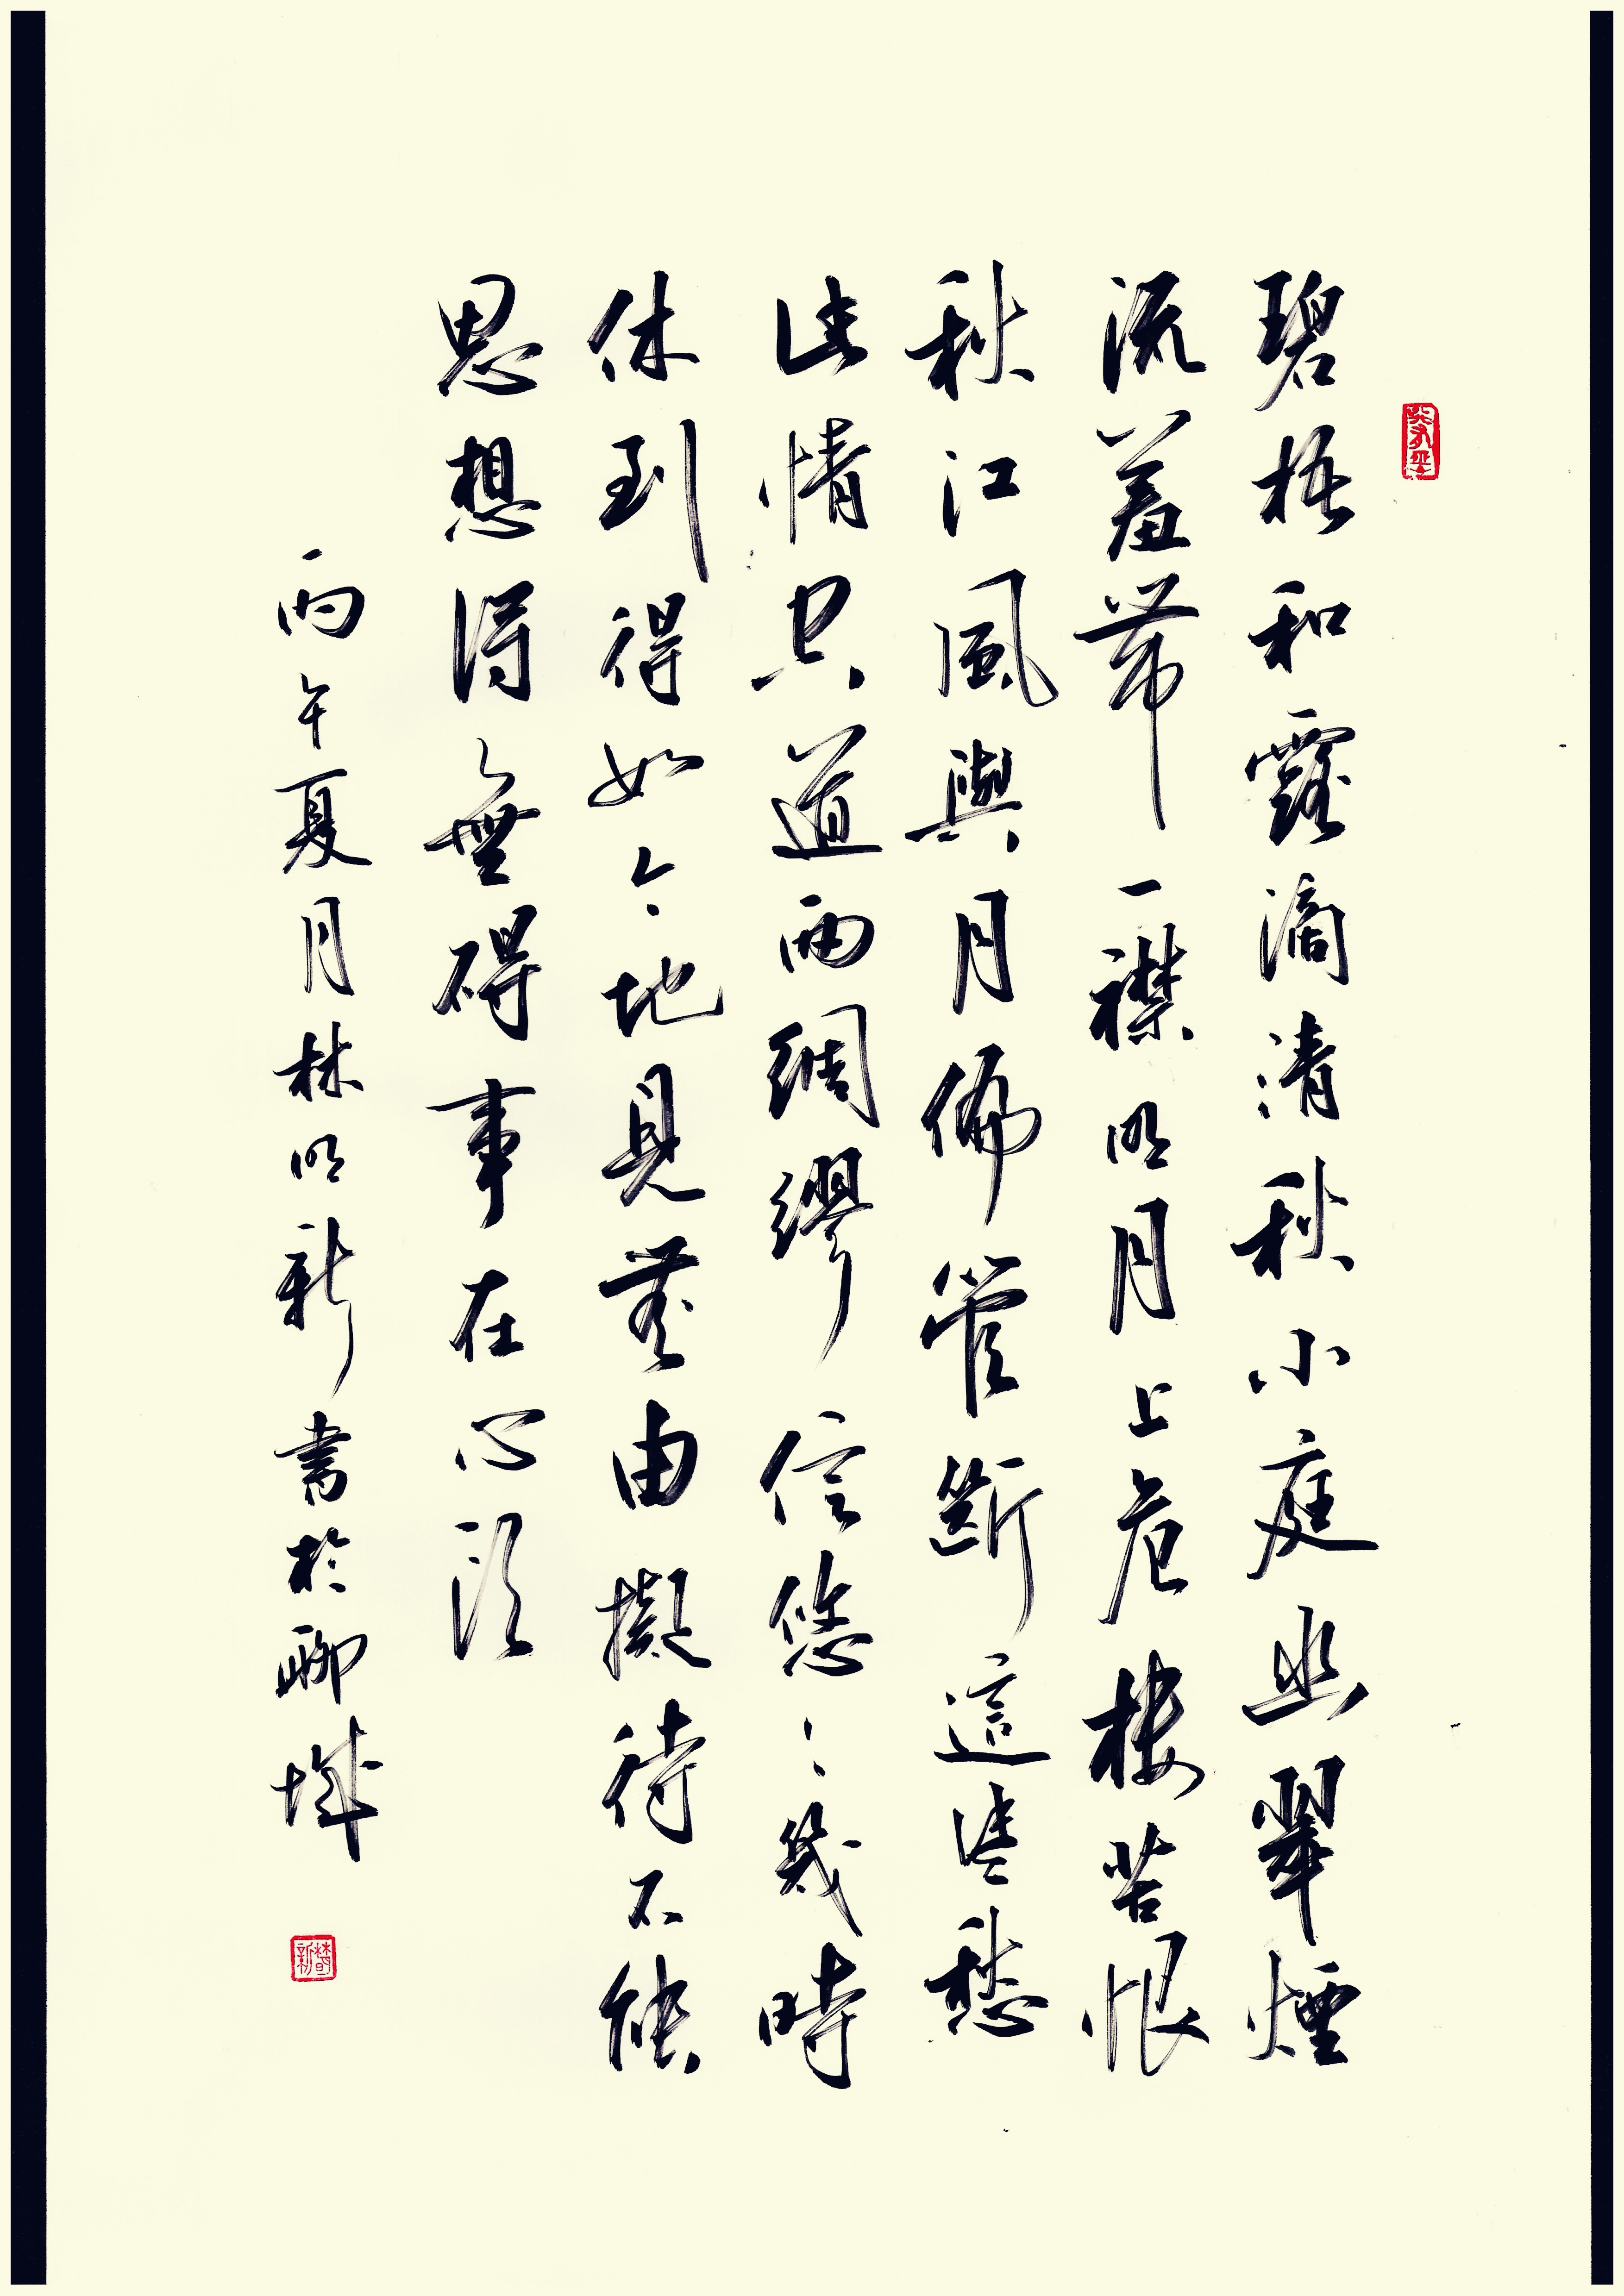 碧梧和露滴清秋小庭幽翠煙
流羞帶一襟明月上危樓苦恨
秋江風與月偏管斷這些愁
此情只道兩綢繆信悠〻幾時
休到得如今〻地見無由擬待不能
思想得無碍事在心頭
丙午夏月林明新書於聊城